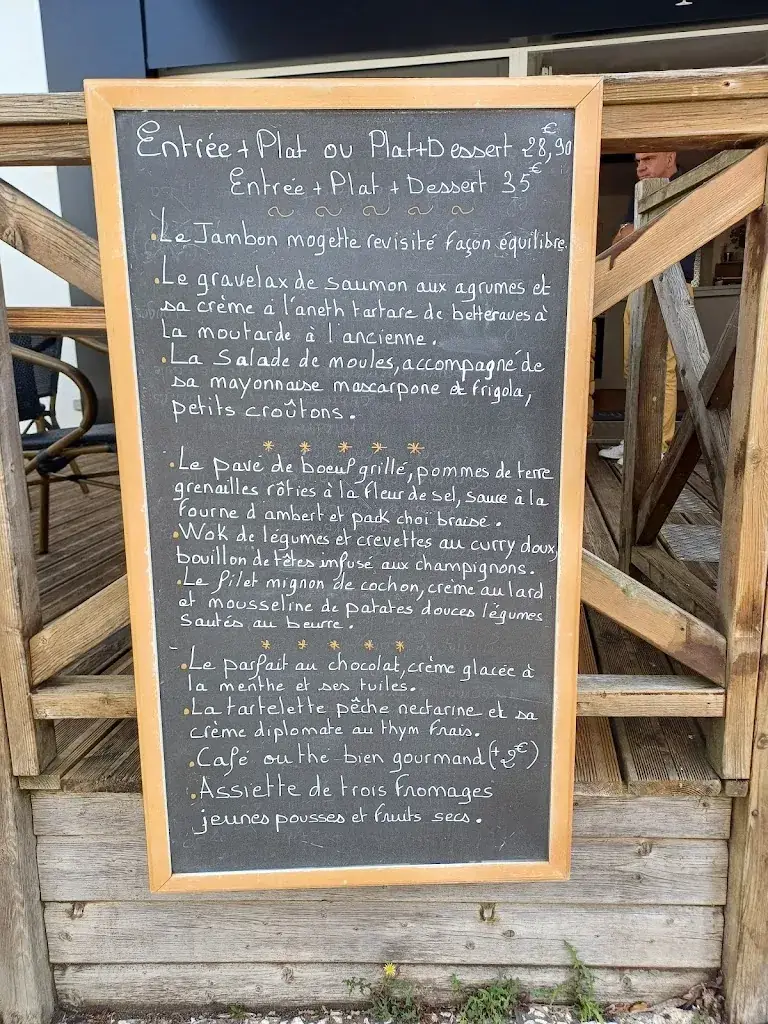 Entrée + Plat ou Plat+Dessert 28,90€
Entrée + Plat + Dessert 35€
.Le Jambon mogette revisité façon équilibre.
.Le gravelax de saumon aux agrumes et
sa crème à l'aneth tartare de betteraves à
la moutarde à l'ancienne.
.La Salade de moules, accompagné de
sa mayonnaise mascarpone et frigola,
petits croûtons.
* * * * *
.Le pavé de boeuf grillé, pommes de terre
grenailles rôties à la fleur de sel, sauce à la
fourne d'ambert et pack choï braisé.
.Wok de légumes et crevettes au curry doux,
bouillon de têtes infusé aux champignons.
.Le filet mignon de cochon, crème au lard
et mousseline de patates douces légumes
sautés au beurre.
* * * * *
.Le parfait au chocolat, crème glacée à
la menthe et ses tuiles.
.La tartelette pêche nectarine et sa
crème diplomate au thym frais.
.Café ou thé bien gourmand (+2€)
.Assiette de trois fromages
jeunes pousses et fruits secs.